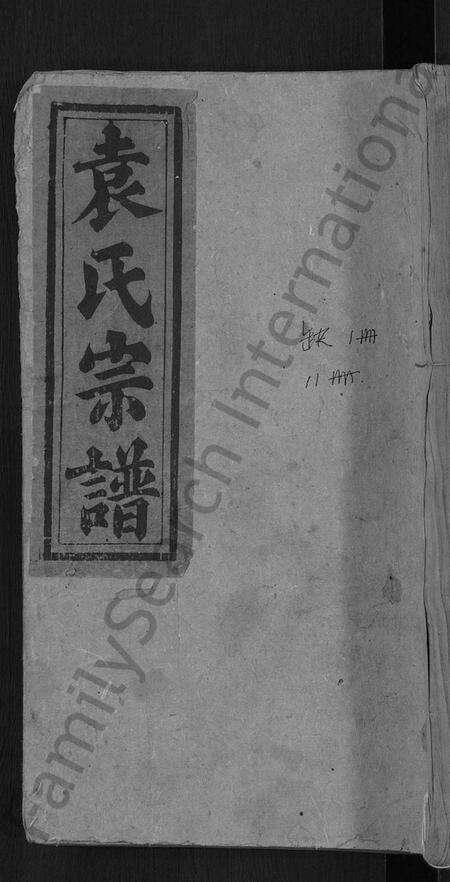 袁氏宗譜
缺1冊
11冊
FamilySearch International